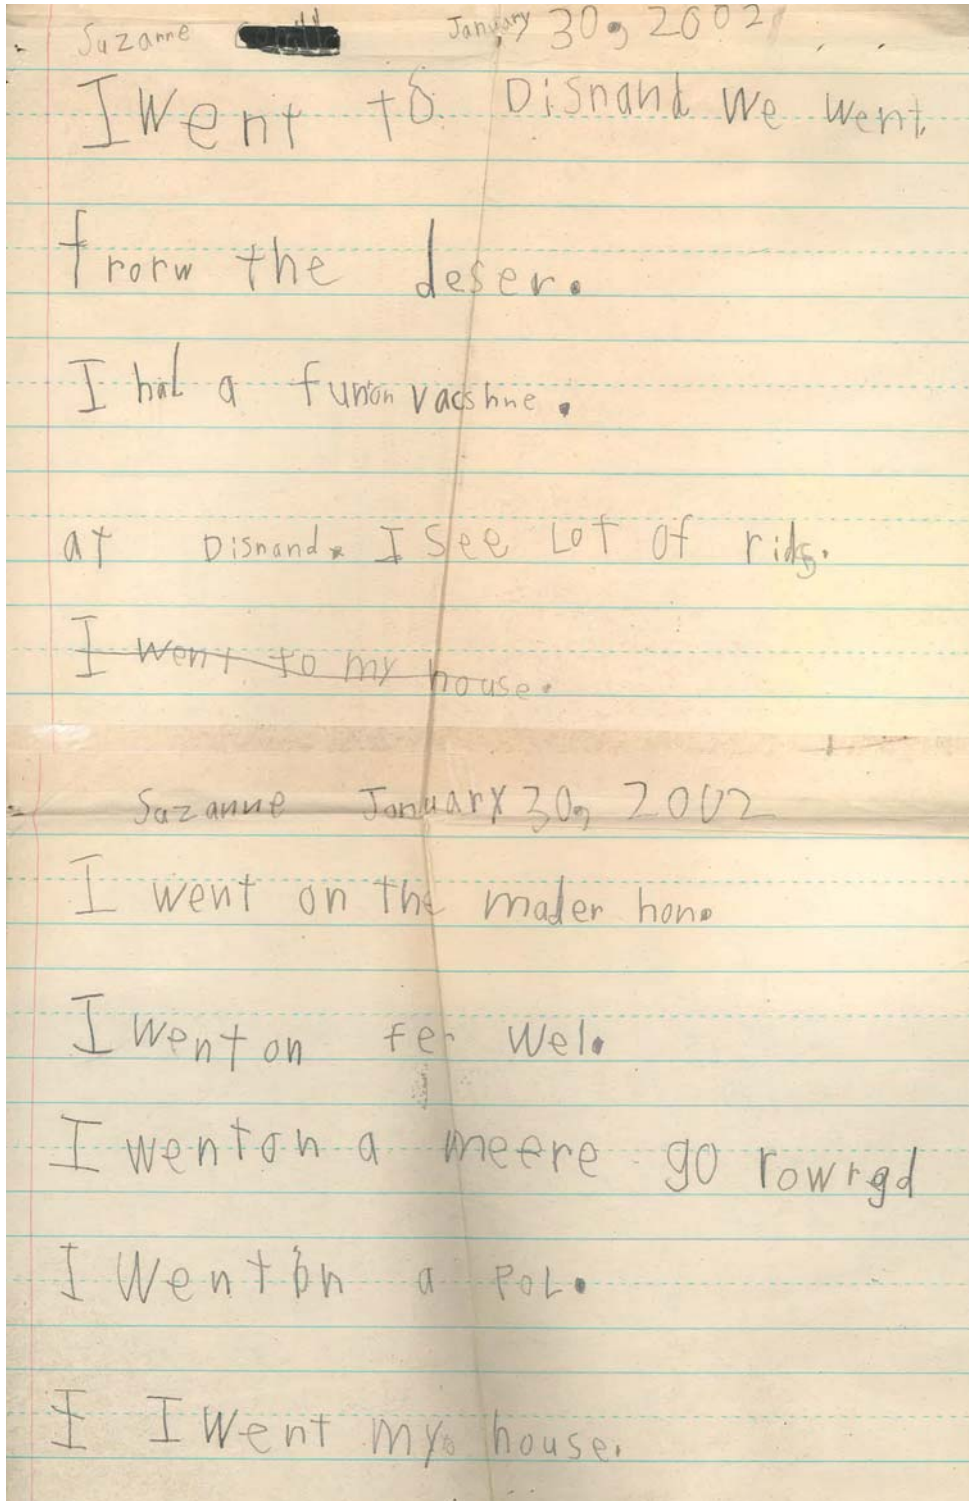 Suzanne January 30, 2002
I Went to Disnand We went
frorw the deser.
I had a funon vacshne.
at Disnand. I See Lot of rids.
I went to my house.
Suzanne January 30, 2002
I went on the mader hon.
I Went on fer Wel.
I went on a meere go rowrgd
I Went on a POL.
I I Went my house.